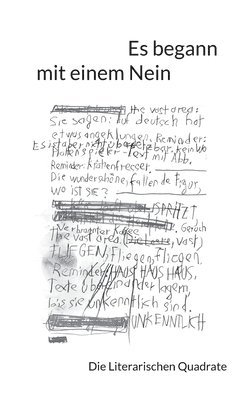 Es begann
mit einem Nein
the vast area:
Sie sagen: Auf deutsch hat
etwas angeklungen. Reminder:
Es ist aber nicht übersetzbar, kein Wo
Reminder: Krötenfresser.
Die wunderschöne, fallende Figur,
wo ist sie?
Verbrannter Kaffee, Geruch
the vast area. (Die Leere, vast)
FLIEGEN, fliegen, fliegen.
Reminder: HAUS HAUS HAUS,
Texte übereinander lagern,
bis sie unkenntlich sind.
UNKENNTLICH
Die Literarischen Quadrate